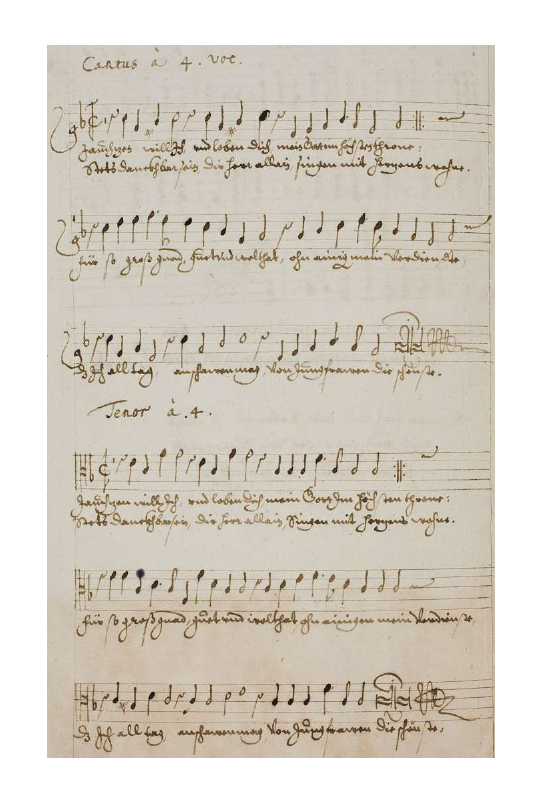 Cantus à 4. voc.
Jauchzen will Ich, vnd loben dich mein Gott im höchsten throne:
Stets danckhbar sein, dir herr allain, singen mit hertzens wohne.
für so groß gnad, guet vnd wolthat, ohn ainig mein Verdienste,
dz Ich all tag, anschawen mag, Von Jungfrawen die schönste.
Tenor à .4.
Jauchzen will Ich, vnd loben dich mein Gott im höchsten throne:
Stets danckhbar sein, dir herr allain, Singen mit hertzens wohne.
für so groß gnad, guet vnd wolthat ohn ainigen mein Verdienste,
dz Ich all tag, anschawen mag, Von Jungfrawen die schönste.